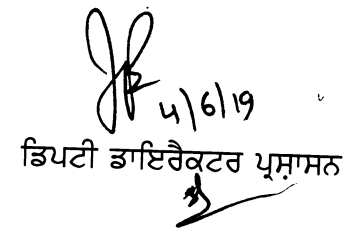 4/6/19
ਡਿਪਟੀ ਡਾਇਰੈਕਟਰ ਪ੍ਰਸ਼ਾਸਨ